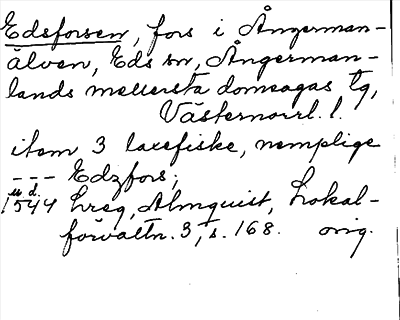 Edsforsen, fors i Ångerman-
älven, Eds sn, Ångerman-
lands mellersta domsagas tg,
Västernorrl. l.
item 3 laxefiske, nemplige
--- Edzfors;
u d.
1544 Lreg, Almquist, Lokal-
förvaltn. 3, s. 168. orig.